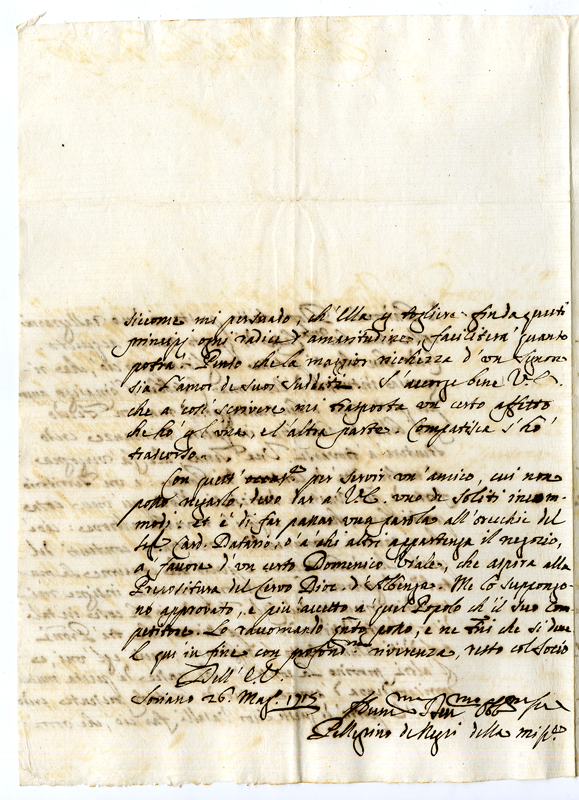 siccome mi persuado, ch'Ella p togliere fin da questi
principj ogni radice d'amaritudine, faciliterà quanto
potrà. Penso che la maggior ricchezza d'un Signore
sia l'amor de suoi Sudditi. S'accorge bene V.E.
che a così scrivere mi trasporta un certo affetto
che hò p l'una, e l'altra parte. Compatisca s'hò
trascorso.
Con quest' occas.e per servir un'amico, cui non
posso negarlo, devo dar à V.E. uno de soliti incom-
modi: et è di far passar una parola all'orecchie del
Sig. Card. Datario, ò a chi altri appartenga il negozio,
à favore d'un certo Domenico Viale, che aspira alla
Prevositura del Cervo Dioc. d'Albenga. Me lo suppongo-
no approvato, e più accetto a quel Popolo ch'il suo Com-
petitore. Lo raccomando q.nto posso, e ne che si deve
E qui in fine con profond.ma riverenza, resto col Socio
Dell' E.V.
Soriano 26. Mag. 1715
Hum.mo Obb.mo
Pellegrino de Negri della miss.e